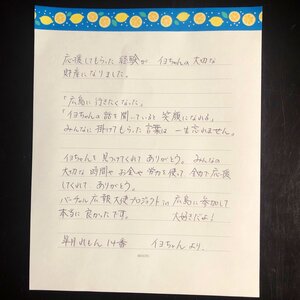 応援してもらった経験が イヨちゃんの大切な
財産になりました。
「広島に行きたくなった。」
「イヨちゃんの話を聞いていると笑顔になれる。」
みんなに掛けてもらった言葉は 一生忘れません。
イヨちゃんを見つけてくれて ありがとう。 みんなの
大切な時間や お金や 労力を使って 全力で応援
してくれて ありがとう。
バーチャル広報大使プロジェクト in 広島に参加して
本当に良かったです。 大好きだよ!
れもん 14番 イヨちゃん より